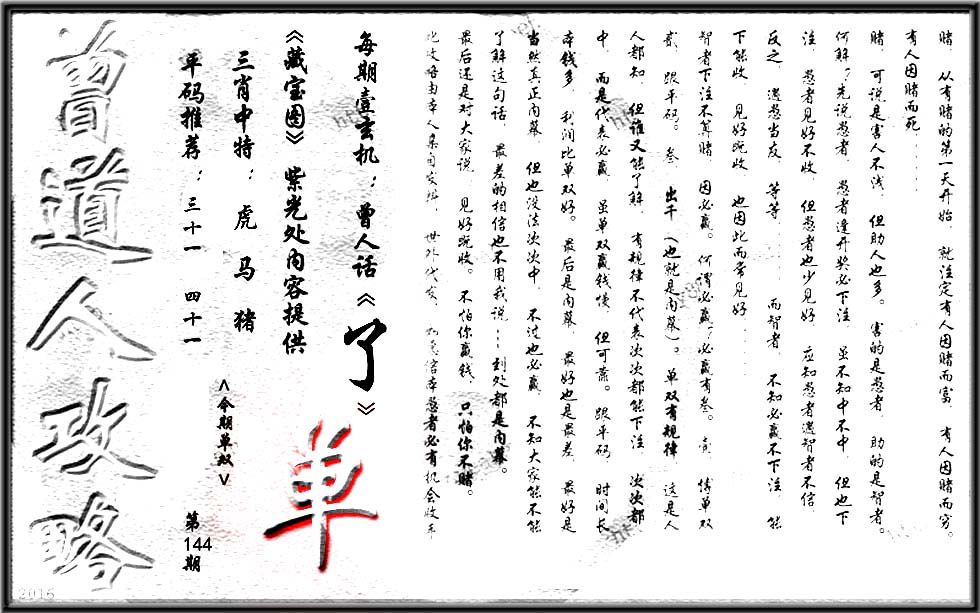 赌、从有赌的第一天开始，就注定有人因赌而富，有人因赌而穷。
有人因赌而死......
赌，可说是害人不浅，但助人也多。害的是愚者，助的是智者。
何解？先说愚者，愚者逢开奖必下注，虽不知中不中，但也下
注，愚者见好不收，但愚者也少见好，应知愚者遇智者不信，
反之，遇愚当友，等等......而智者，不知必赢不下注，能
下能收，见好既收，也因此而常见好......
智者下注不算赌，因必赢。何谓必赢？必赢有叁。壹、博单双
贰、跟平码。叁、出千（也就是内幕）。单双有规律，这是人
人都知，但谁又能了解，有规律不代表次次都能下注，次次都
中，而是代表必赢，虽单双赢钱慢，但可靠。跟平码，时间长
本钱多，利润比单双好。最后是内幕，最好也是最差，最好是
当然真正内幕，但也没法次次中，不过也必赢，不知大家能不能
了解这句话，最差的相信也不用我说...到处都是内幕。
最后还是对大家说，见好既收。不怕你赢钱，只怕你不赌。
必有机会收
每期壹玄机：曾人话《了》
《藏宝图》紫光处内容提供
单
三肖中特：虎 马 猪
<今期单双>
平码推荐：三十一 四十一
第144期
曾道人攻略
2016